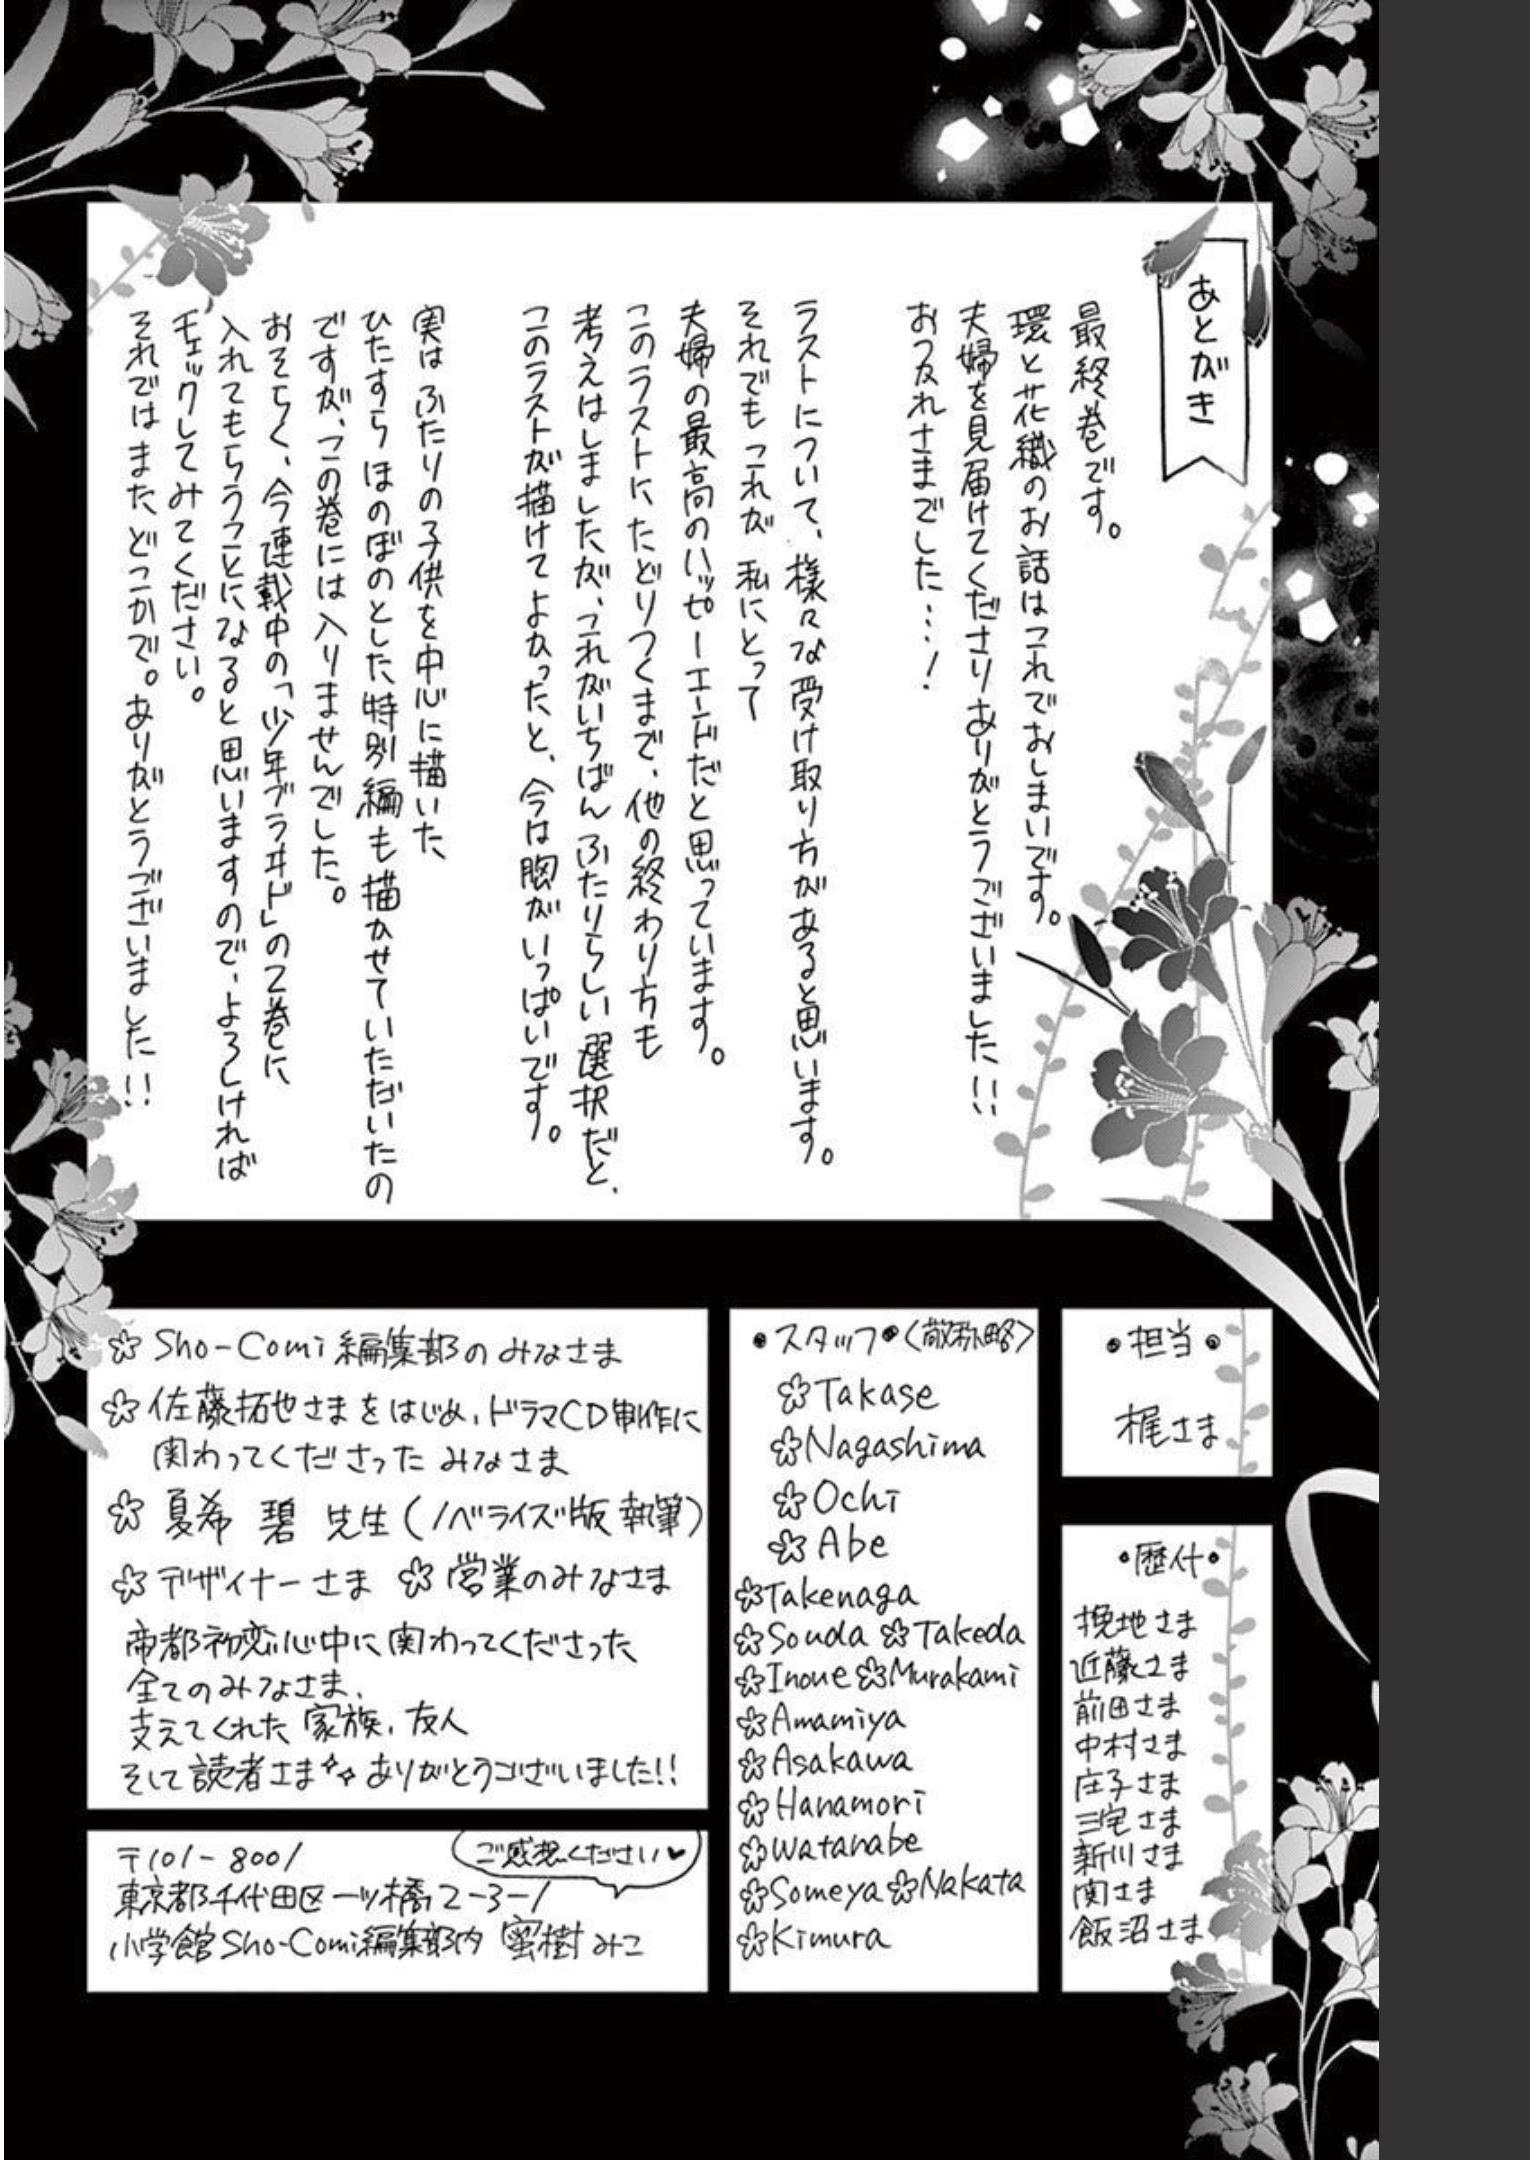 あとがき
最終巻です。
環と花織のお話はこれでおしまいです。
夫婦を見届けてくださりありがとうございました!!
おつかれさまでした…!
ラストについて、様々な受け取り方があると思います。
それでもこれが私にとって
夫婦の最高のハッピーエンドだと思っています。
このラストにたどりつくまで、他の終わり方も
考えはしましたが、これがいちばんふたりらしい選択だと、
このラストが描けてよかったと、今は胸がいっぱいです。
実はふたりの子供を中心に描いた、
ひたすらほのぼのとした特別編も描かせていただいたの
ですが、この巻には入りませんでした。
おそらく、今連載中の「少年ブライド」の2巻に
入れてもらうことになると思いますので、よろしければ
チェックしてみてください。
それではまた、どこかで。ありがとうございました!!
•担当•
梶さま
•歴代•
挽地さま
近藤さま
前田さま
中村さま
庄子さま
三宅さま
新川さま
関さま
飯沼さま
•スタッフ•〈敬称略〉
Takase
Nagashima
Ochi
Abe
Takenaga
Souda Takeda
Inoue Murakami
Amamiya
Asakawa
Hanamori
Watanabe
Someya Nakata
Kimura
Sho-Comi編集部のみなさま
佐藤拓也さまをはじめ、ドラマCD制作に
関わってくださったみなさま
夏希 碧 先生(ノベライズ版執筆)
デザイナーさま 営業のみなさま
帝都初恋心中に関わってくださった
全てのみなさま、
支えてくれた家族、友人
そして読者さま ありがとうございました!!
ご感想ください♥
〒101-8001
東京都千代田区一ツ橋2-3-1
小学館Sho-Comi編集部内 蜜樹みこ